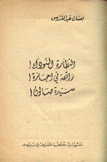 احسان عبد القدوس
النظارة السوداء
راقصة في اجازة!
سيدة صالون!